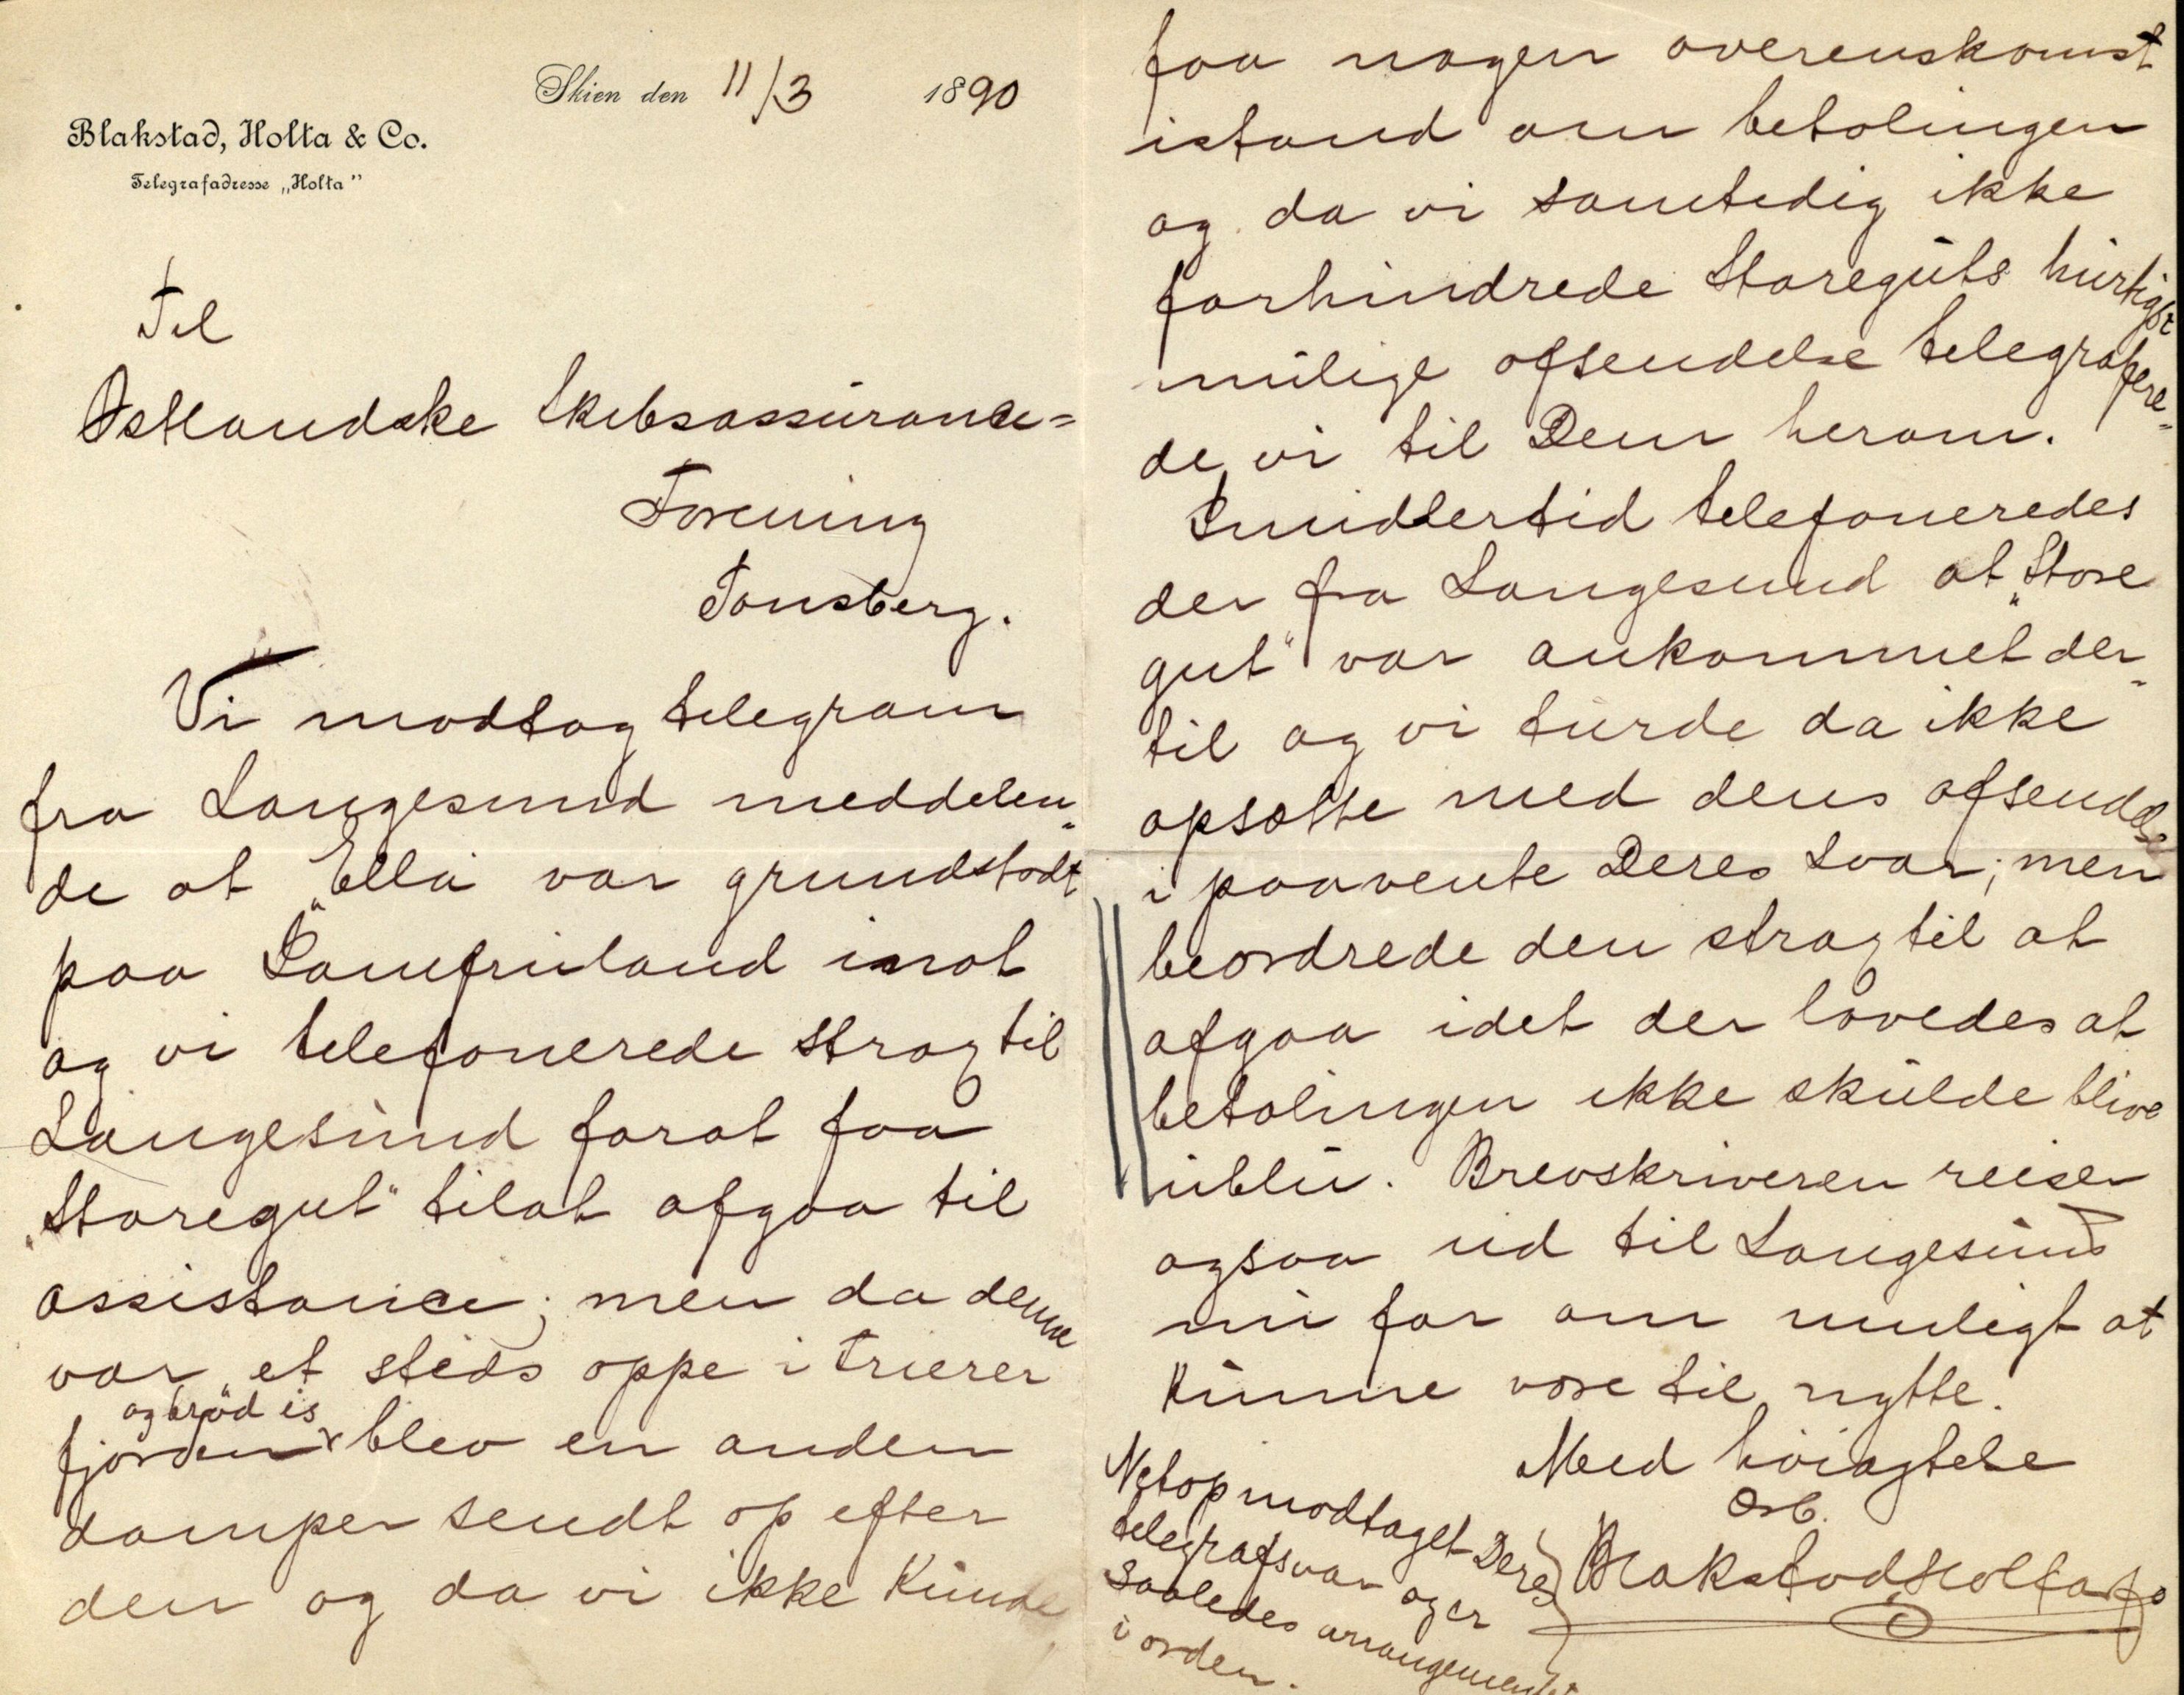 Skien den 11/3 1890
Blakstad, Holta & Co.
Telegrafadresse „Holta"
Til
Østlandske Skibsassurance=
Forening
Tønsberg.
Vi modtog telegram
fra Langesund meddelen-
de at „Ella" var grundstødt
paa Jomfruland inat
og vi telefonerede strax til
Langesund forat faa
„Storegut" tilat afgaa til
assistance; men da denne
var et steds oppe i Frier
og brød is
fjorden blev en anden
damper sendt op efter
den og da vi ikke kunde
faa nogen overenskomst
istand om betalingen
og da vi samtidig ikke
forhindrede Storeguts hurtigst
mulige afsendelse telegrafere-
de vi til Dem herom.
Imidlertid telefoneredes
der fra Langesund at „Store
gut" var ankommet der-
til og vi turde da ikke
opsætte med dens afsendelse
i paavente Deres svar; men
beordrede den strax til at
afgaa idet der lovedes at
betalingen ikke skulde blive
ublu. Brevskriveren reiser
ogsaa ud til Langesund
nu for om muligt at
kunne være til nytte.
Med høiagtelse
Erb.
Blakstad Holta & Co
Netop modtaget Deres
telegrafsvar og er
saaledes arrangementet
i orden.